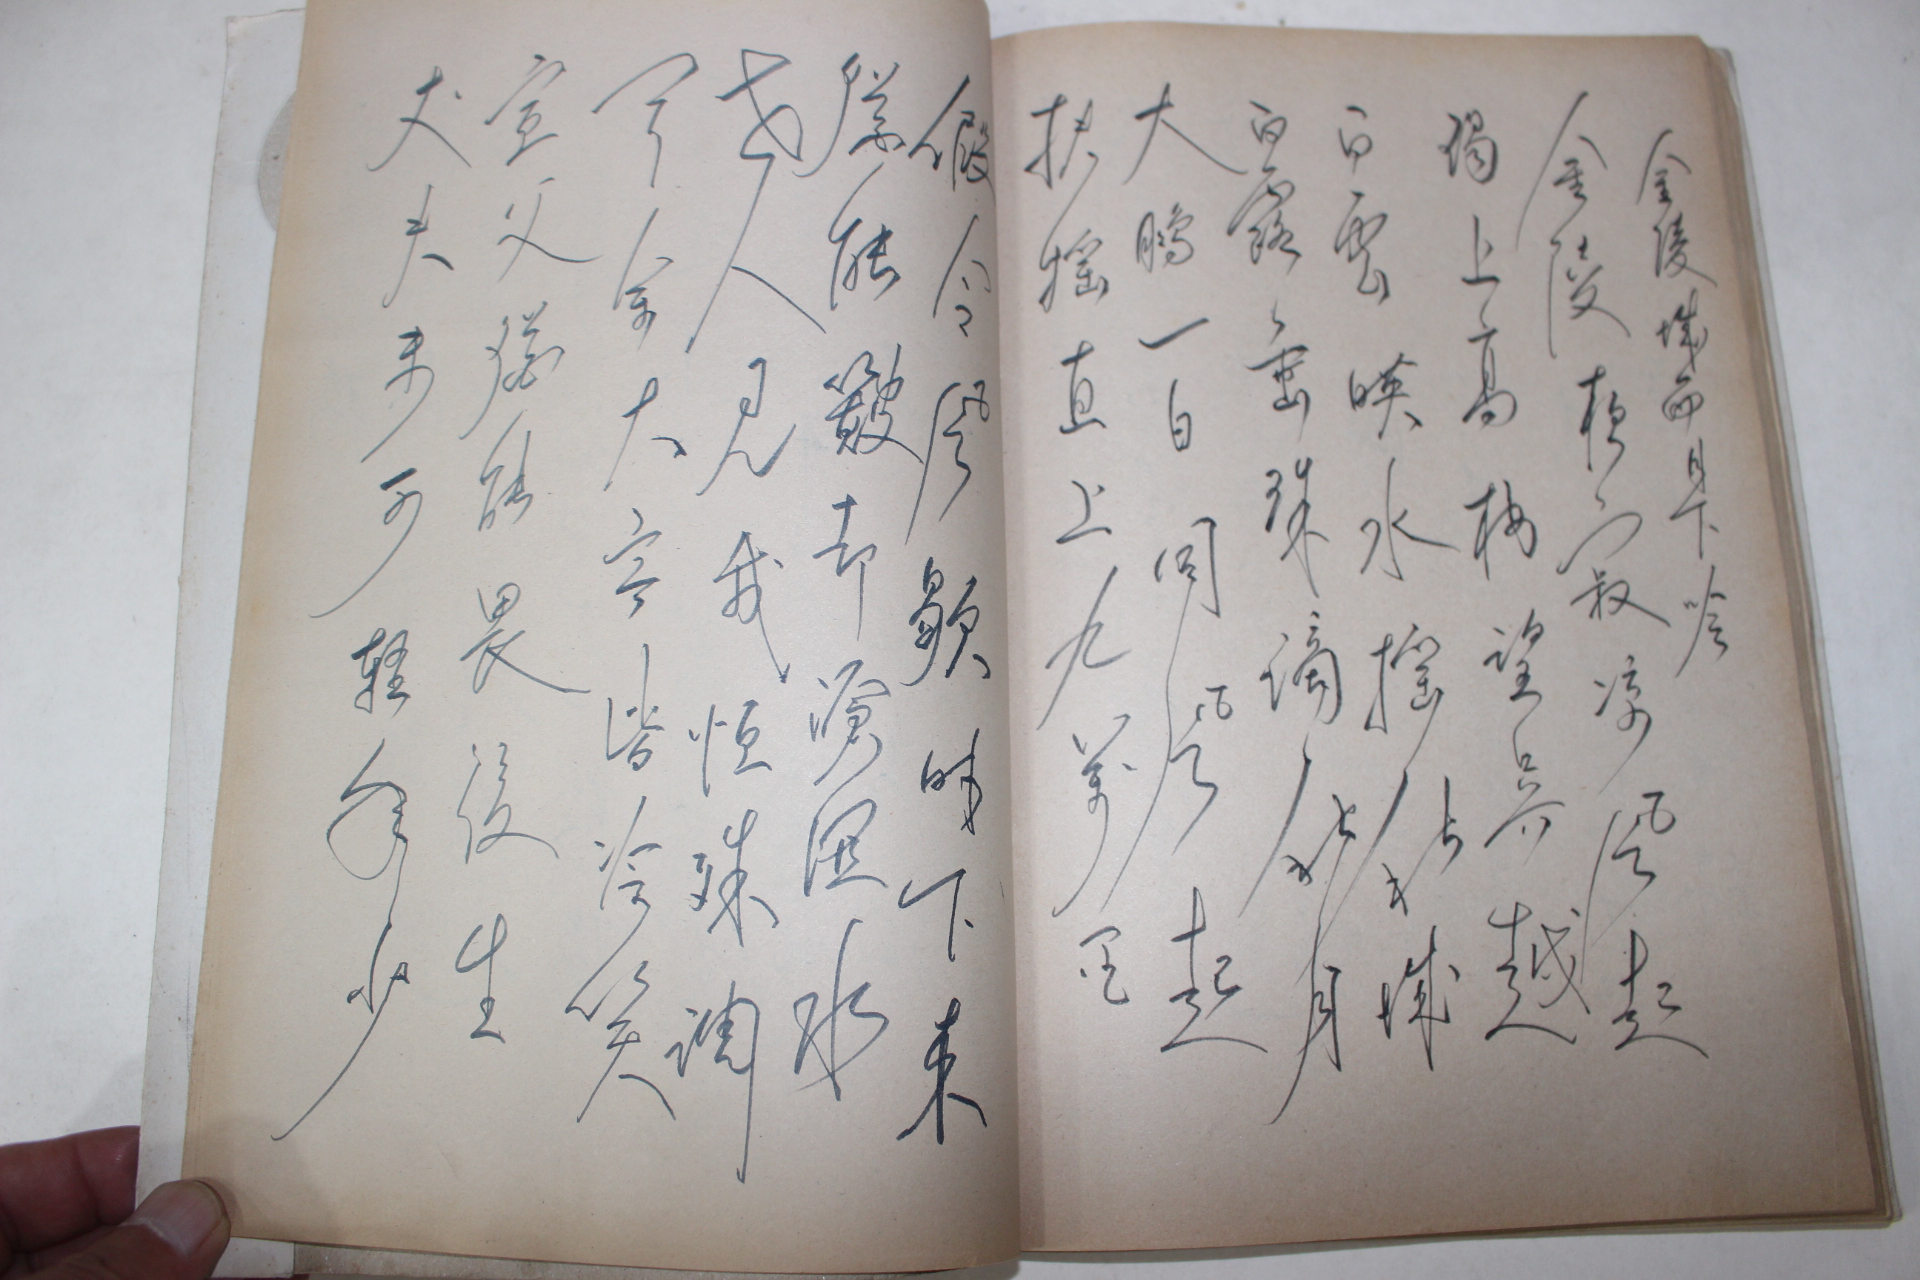 金陵城西月下吟
金陵夜寂凉風起
獨上高楼望吳越
白雲映水搖秋城
白露垂珠滴秋月
大鵬一日同風起
扶搖直上九萬里
假令風歇時下來
猶能簸却滄溟水
世人見我恒殊調
聞余大言皆冷笑
宣父猶能畏後生
丈夫未可輕年少